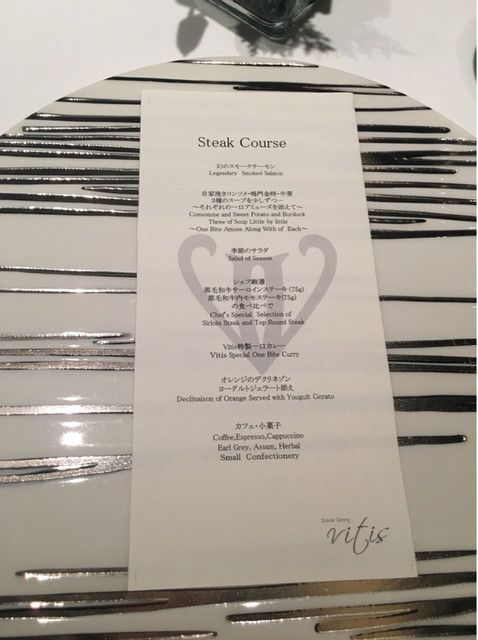 Steak Course
幻のスモークサーモン
Legendary Smoked Salmon
自家挽きコンソメ・鳴門金時・牛蒡
3種のスープを少しずつ…
～それぞれの一口アミューズを添えて～
Consomme and Sweet Potato and Burdock
Three of Soup Little by little
～One Bite Amuse Along With of Each～
季節のサラダ
Salad of Season
シェフ厳選
黒毛和牛サーロインステーキ(75g)
黒毛和牛内モモステーキ(75g)
の食べ比べで
Chef's Special Selection of
Sirloin Steak and Top Round Steak
Vitis特製一口カレー
Vitis Special One Bite Curry
オレンジのデクリネゾン
ヨーグルトジェラート添え
Declinaison of Orange Served with Yougult Gerato
カフェ・小菓子
Coffee,Espresso,Cappuccino
Earl Grey, Assam, Herbal
Small Confectionery
Steak Dining
vitis